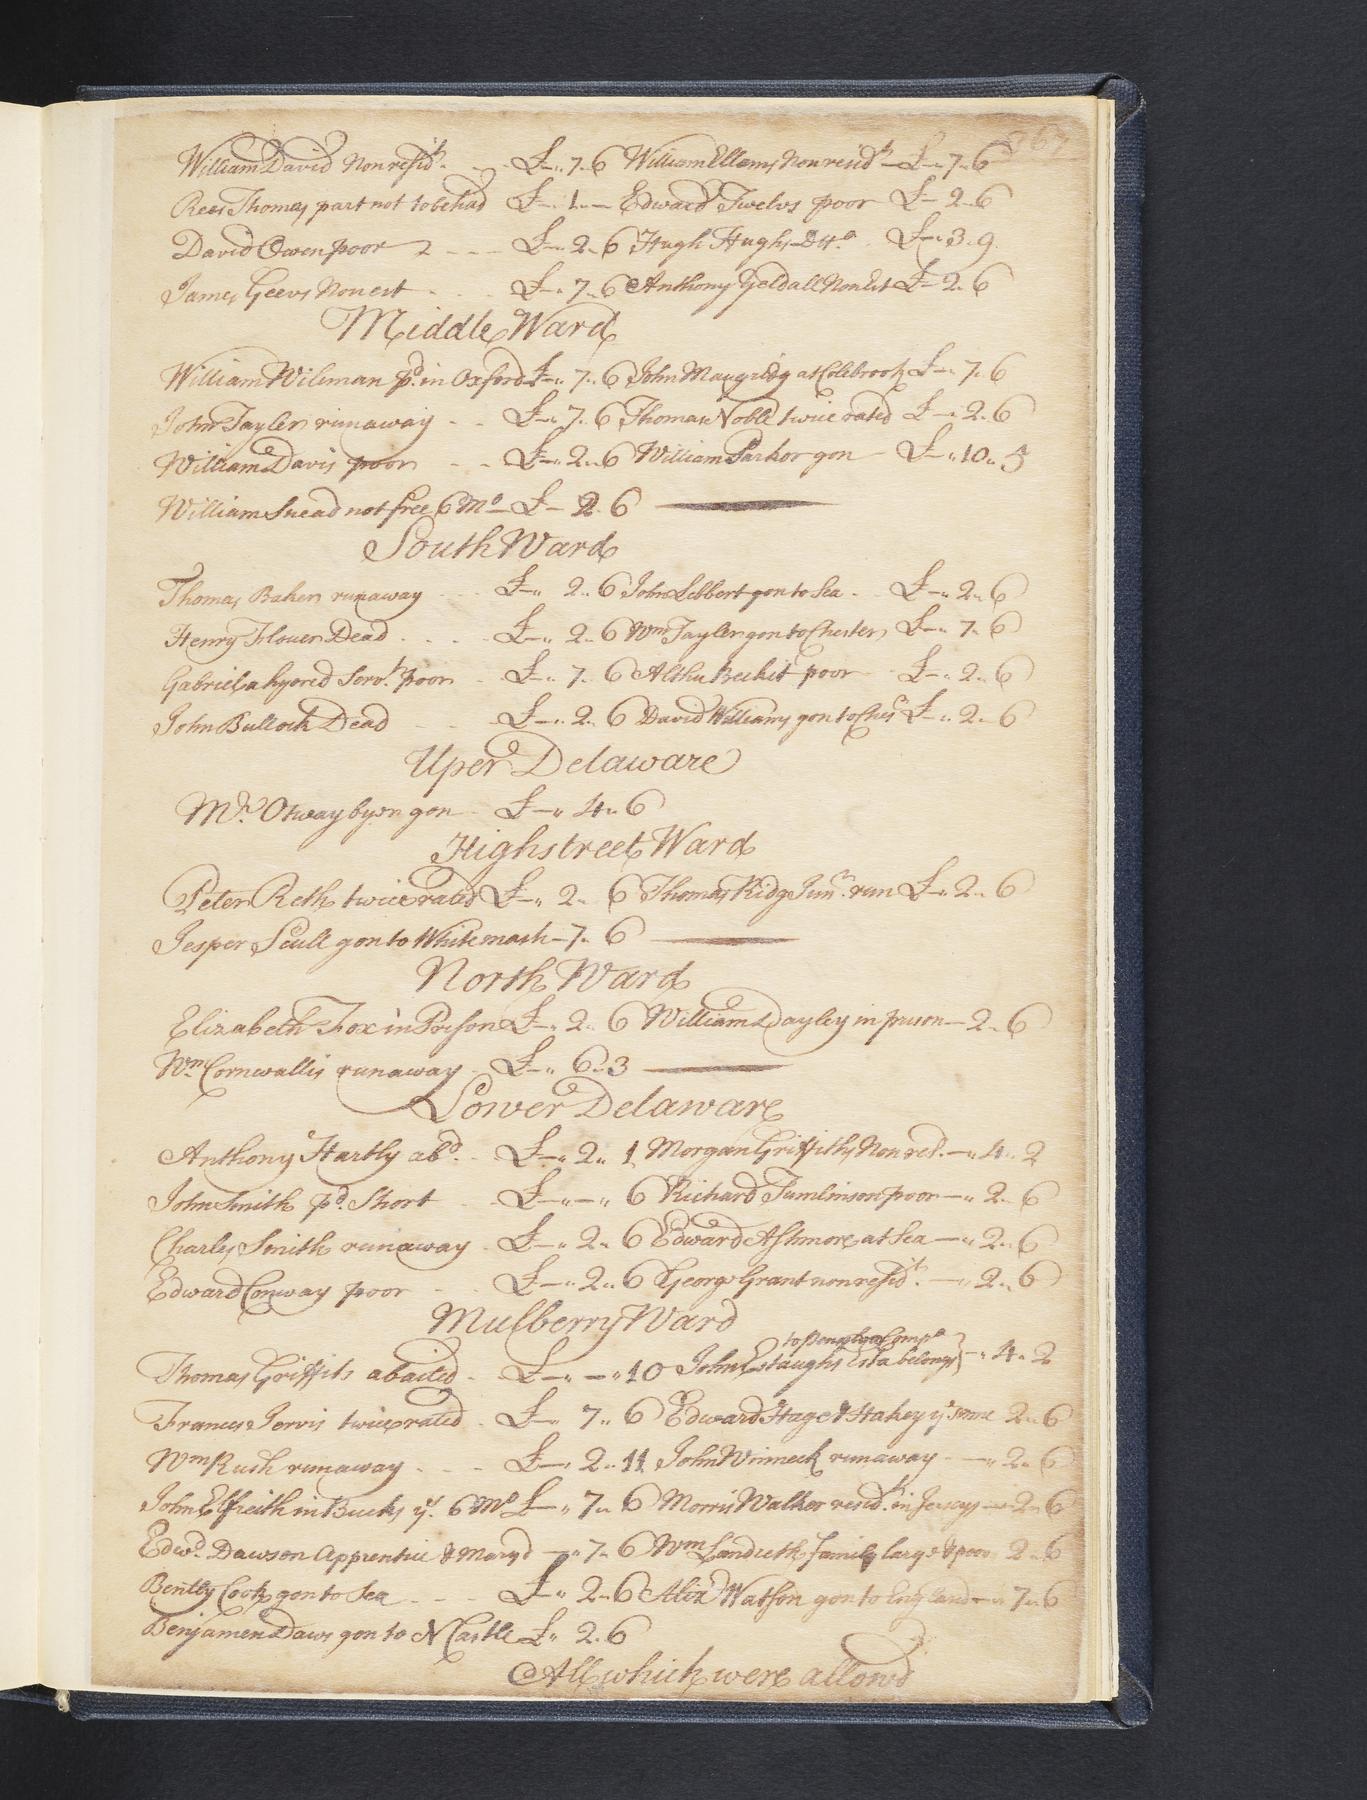 267
William David Nonresidt. - - £-"7"6 William Ellems Nonresidt - £-"7"6
Rees Thomas part not to be had £-"1"- Edward Twelvs poor £- 2"6
David Owen poor 2 - - - £-"2"6 Hugh Hughs Dtto. £-"3"9
James Geevs Nonest - - - £-"7"6 Anthony Geldall NonEst £-2"6
Middle Ward
William Wileman pd. in Oxford £-"7"6 John Maugridg at Colebrook £-"7"6
John Tayler runaway - - £-"7"6 Thomas Noble twice rated £-"2"6
William Davis poor - - £-"2"6 William Parker gon - £-"10"5
William Snead not free 6 Mo - £- 2"6
South Ward
Thomas Baker runaway - - - £-" 2"6 John Lebbert gon to Sea - £-"2"6
Henry Flower Dead - - - - £-" 2"6 Wm Tayler gon to Chester £-"7"6
Gabriel a hyored Servt. poor - £-"7"6 Althu Beckit poor - £-"2"6
John Bullock Dead - - £-"2"6 David Williams gon to Ches £-"2"6
Uper Delaware
Mr. Otway byon gon - £-"4"6
Highstreet Ward
Peter Reth twice rated £-"2"6 Thomas Ridge Junr. run £-"2"6
Jesper Scull gon to Whitemash - 7"6
North Ward
Elizabeth Fox in Prison £-"2"6 William Dayley in prison - 2"6
Wm Cornwallis runaway - £-"6"3
Lower Delaware
Anthony Hartly abd. - £-"2"1 Morgan Griffiths Nonred. -"4"2
John Smith pd. Short - £-"-"6 Richard Tumlinson poor -"2"6
Charles Smith runaway - £-"2"6 Edward Ashmore at Sea -"2"6
Edward Conway poor - - £-"2"6 George Grant nonresidt. -"2"6
Mulberry Ward
to Pensylva Compa
Thomas Griffits abaited - £-"-"10 John Estaughs Esta belongs -"4"2
Francis Jervis twice rated - £-"7"6 Edward Hage & Hakey ye same 2"6
Wm Rush runaway - - - £-"2"11 John Winneck runaway - -"2"6
John Elfreith in Bucks ye. 6 Mo £-"7"6 Morris Walker residt. in Jersey -"2"6
Edwd. Dawson Apprentice & Maryd -"7"6 Wm Landreth family large & poor 2"6
Bently Cook gon to Sea - - - £-"2"6 Alixd Watson gon to England -"7"6
Benjamen Daws gon to N Castle £-"2"6
All which were allowd